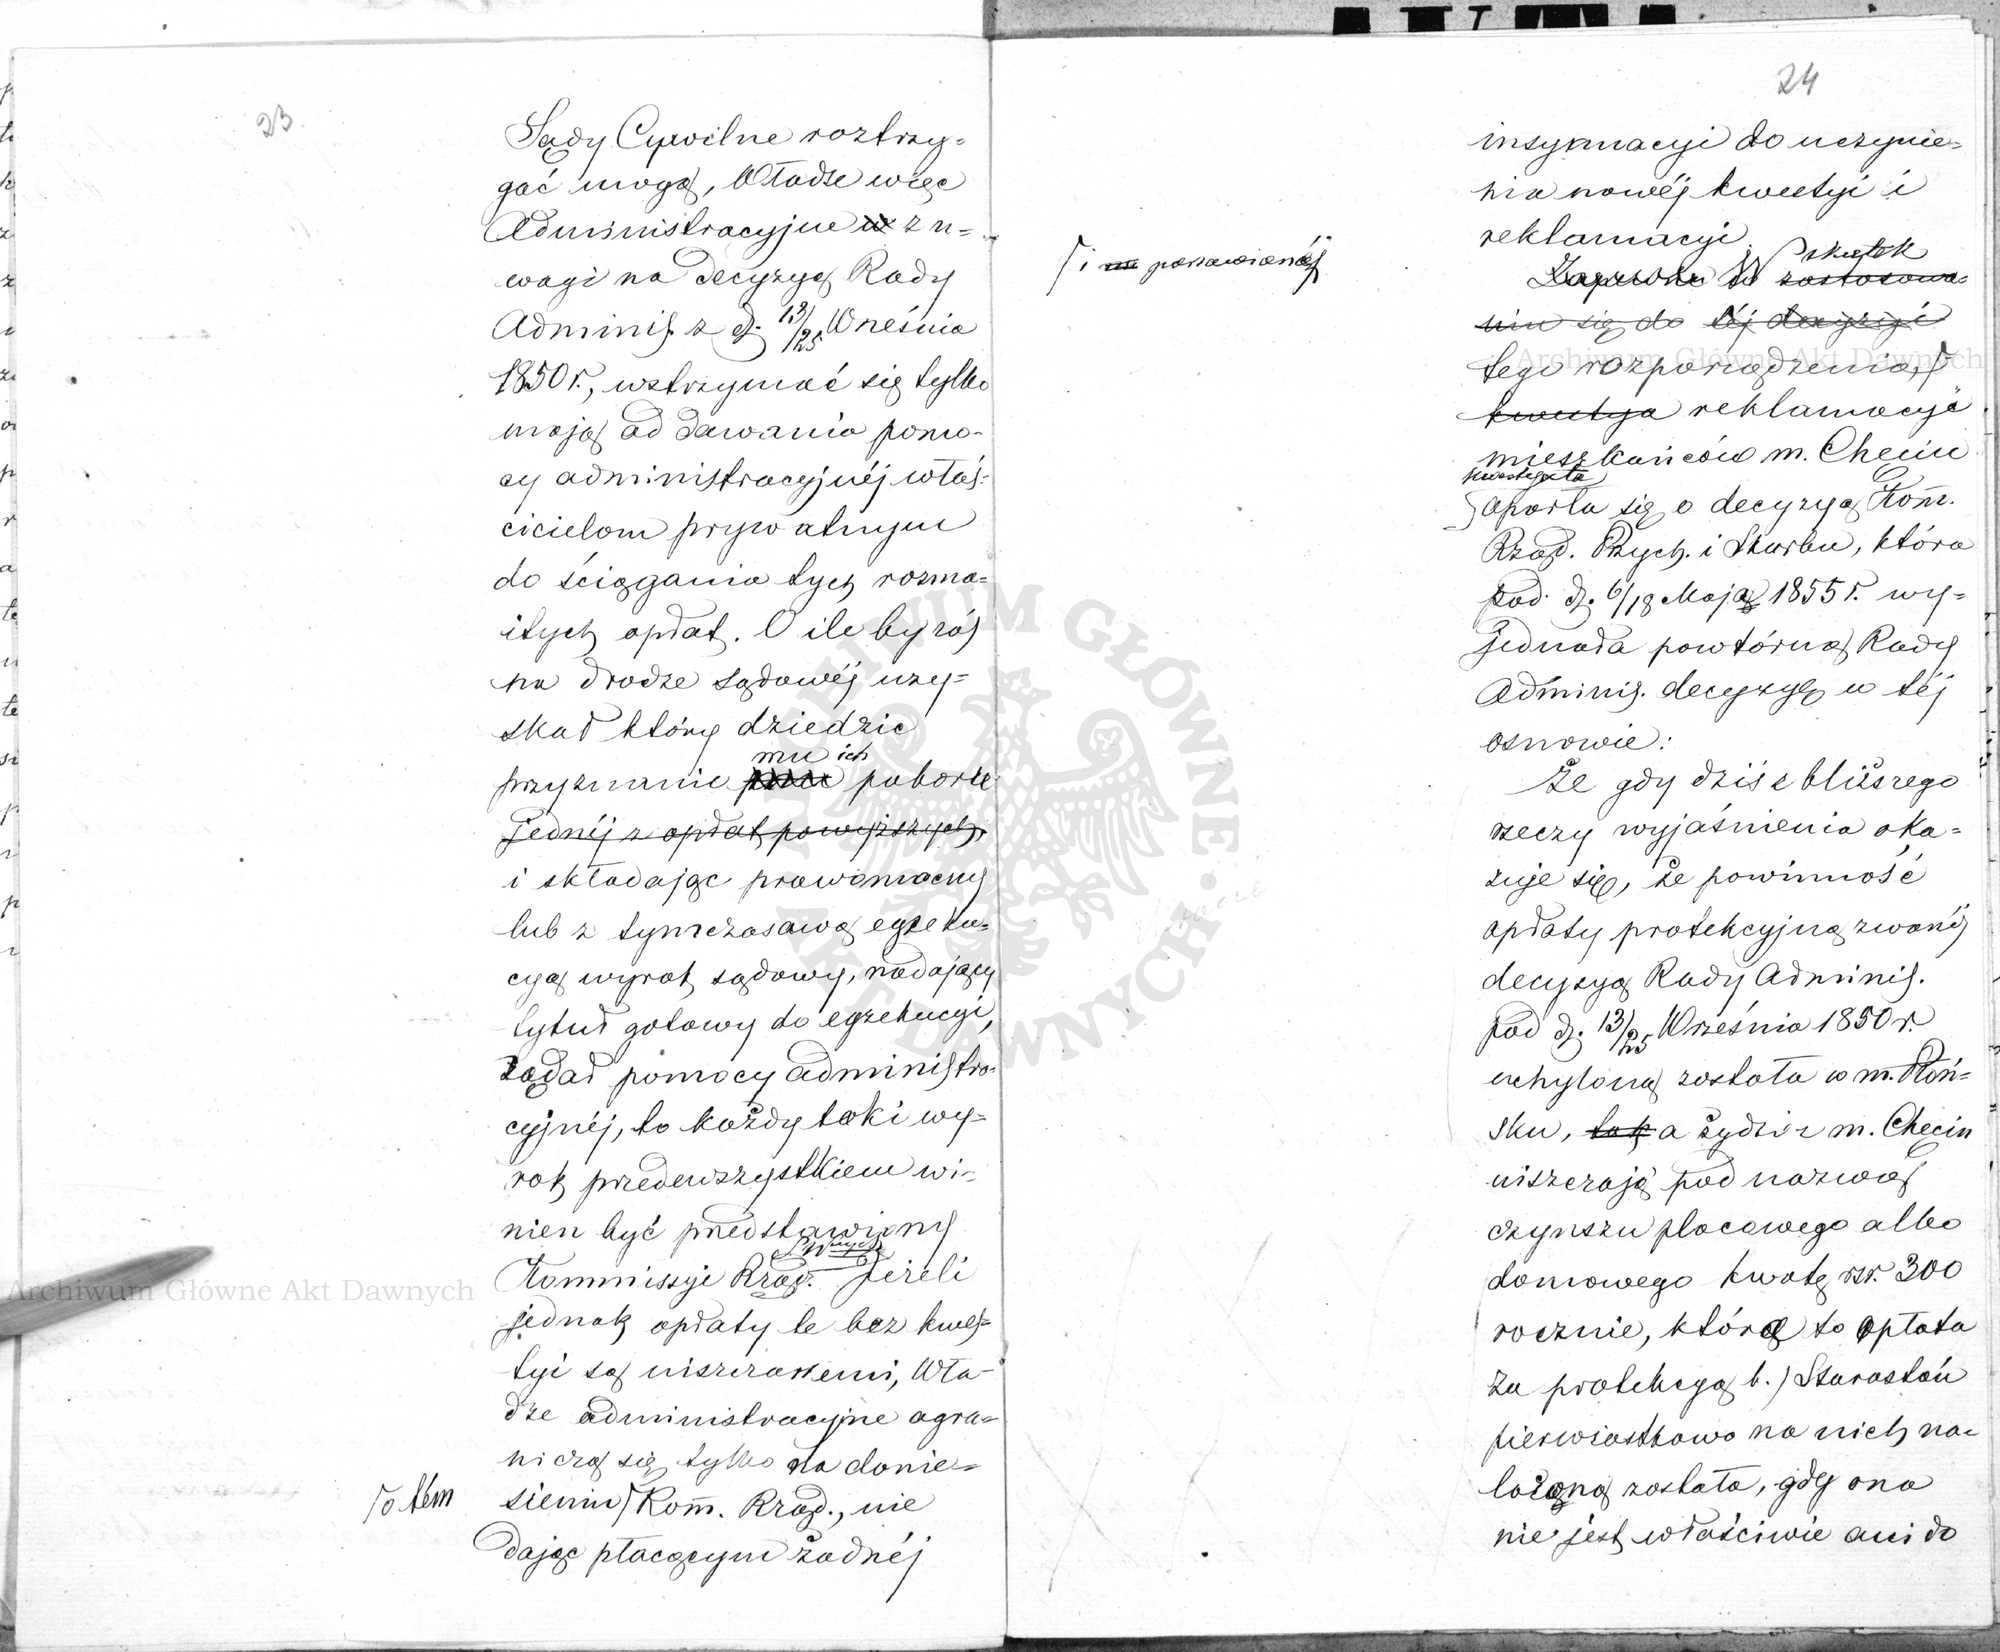 23
Sądy Cywilne roztrzy-
gać mogą, Władze więc
Administracyjne z u-
wagi na decyzyą Rady
Adminis. z d. 13/25 Września
1850 r., wstrzymać się tylko
mają od dawania pomo-
cy administracyjnéj właś-
cicielom prywatnym
do ściągania tych rozma-
itych opłat. O ile by zaś
na drodze sądowéj uzy-
skał który dziedzic
mu ich
przyznanie poborze
jednéj z opłat powyższych,
i składając prawomocny
lub z tymczasową egzeku-
cyą wyrok sądowy, nadający
tytuł gotowy do egzekucyi,
żądał pomocy administra-
cyjnéj, to każdy taki wy-
rok przedewszystkiem wi-
nien być przedstawiony
Kommissyi Rząd. Jeżeli
jednak opłaty te bez kwes-
tyi są uiszczanemi, Wła-
dze administracyjne ogra-
niczą się tylko na donie-
sieniu Kom. Rząd., nie
o tém
dając płacącym żadnéj
24
insynuacyi do uczynie-
nia nowéj kwestyi i
reklamacyi.
skutek
zastosowa-
niu się do téj decyzyi
i ponawianéj
tego rozporządzenia,
kwestya reklamacyi
mieszkańców m. Chęcin
kwestya ta
oparła się o decyzyą Kom.
Rząd. Przych. i Skarbu, która
pod d. 6/18 Maja 1855 r. wy-
jednała powtórną Rady
Adminis. decyzyę w téj
osnowie:
Że gdy dziś z bliższego
rzeczy wyjaśnienia oka-
zuje się, że powinność
opłaty protekcyjną zwanéj
decyzyą Rady Adminis.
pod d. 13/25 Września 1850 r.
uchyloną została w m. Płoń-
sku, tak a żydzi z m. Chęcin
uiszczają pod nazwą
czynszu placowego albo
domowego kwotę rsr. 300
rocznie, którą to opłata
za protekcyą b. Starostów
pierwiastkowo na nich na-
łożoną została, gdy ona
nie jest właściwie ani do
Archiwum Główne Akt Dawnych
Archiwum Główne Akt Dawnych
ARCHIWUM GŁÓWNE AKT DAWNYCH